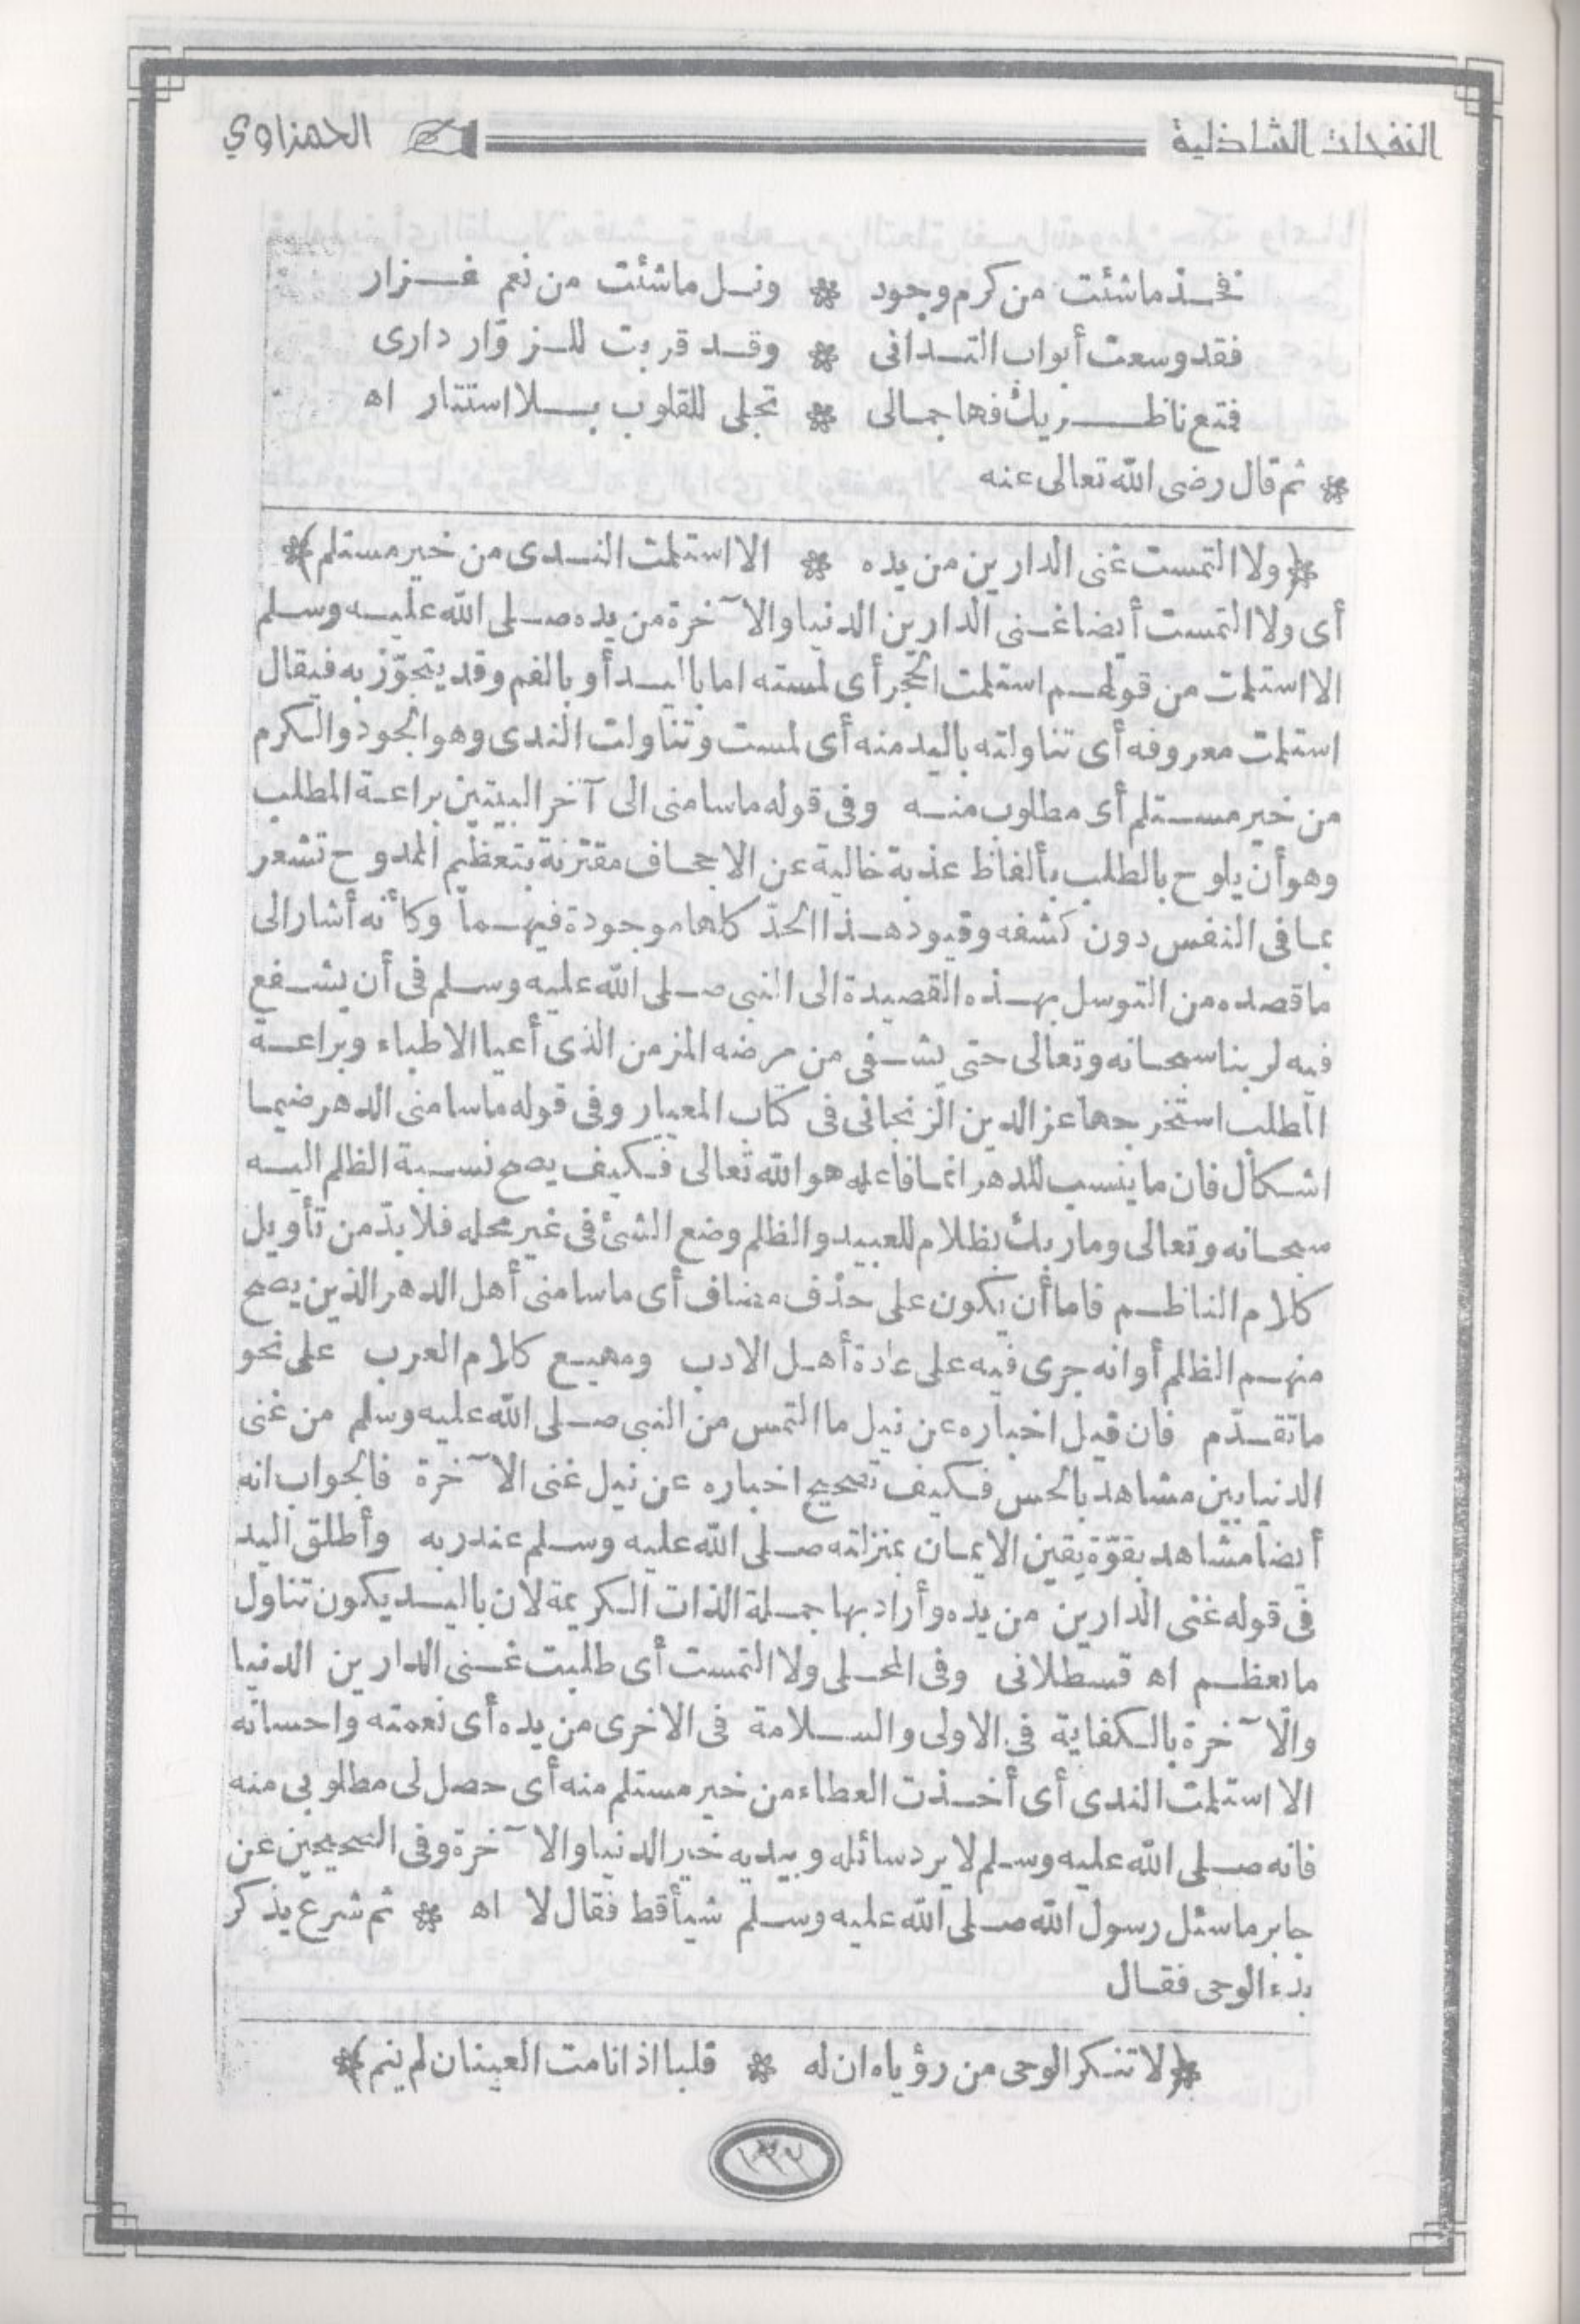 النفحات الشاذلية الحمزاوي
فخذ ماشئت من كرم وجود * ونل ماشئت من نعم غزار
فقد وسعت أبواب التدانى * وقد قربت للزوّار دارى
فتع ناظريك فها جمالى * تجلى للقلوب بلا استتار اه
* ثم قال رضى الله تعالى عنه
*(ولا التمست غنى الدارين من يده * الا استلمت الندى من خير مستلم)*
أى ولا التمست أيضا غنى الدارين الدنيا والآخرة من يده صلى الله عليه وسلم
الا استلمت من قولهم استلمت الحجر أى لمسته اما باليد أو بالفم وقد يتجوّز به فيقال
استلمت معروفه أى تناولته باليد منه أى لمست وتناولت الندى وهو الجود والكرم
من خير مستلم أى مطلوب منه وفى قوله ماسامنى الى آخر البيتين براعة المطلب
وهو أن يلوح بالطلب بألفاظ عذبة خالية عن الاجحاف مقترنة بتعظيم الممدوح تشعر
بما فى النفس دون كشفه وقيود هذا الحدّ كلها موجودة فيهما وكأنه أشار الى
ما قصده من التوسل بهذه القصيدة الى النبى صلى الله عليه وسلم فى أن يشفع
فيه لربنا سبحانه وتعالى حتى يشفى من مرضه المزمن الذى أعيا الاطباء وبراعة
الطلب استخرجها عز الدين الزنجانى فى كتاب المعيار وفى قوله ماسامنى الدهر ضيما
اشكال فان ما ينسب للدهر انما فاعله هو الله تعالى فكيف يصح نسبة الظلم اليه
سبحانه وتعالى وما ربك بظلام للعبيد والظلم وضع الشئ فى غير محله فلا بدّ من تأويل
كلام الناظم فاما أن يكون على حذف مضاف أى ماسامنى أهل الدهر الذين يصح
منهم الظلم أو انه جرى فيه على عادة أهل الادب ومهيع كلام العرب على نحو
ما تقدّم فان قيل اخباره عن نيل ما التمس من النبى صلى الله عليه وسلم من غنى
الدنيا بين مشاهد بالحس فكيف تصحيح اخباره عن نيل غنى الآخرة فالجواب انه
أيضا مشاهد بقوّة يقين الايمان بمنزلته صلى الله عليه وسلم عند ربه وأطلق اليد
فى قوله غنى الدارين من يده وأراد بها جملة الذات الكريمة لان باليد يكون تناول
ما يعظم اه قسطلانى وفى المحلى ولا التمست أى طلبت غنى الدارين الدنيا
والآخرة بالكفاية فى الاولى والسلامة فى الاخرى من يده أى نعمته واحسانه
الا استلمت الندى أى أخذت العطاء من خير مستلم منه أى حصل لى مطلوبى منه
فانه صلى الله عليه وسلم لا يرد سائله وبيديه خير الدنيا والآخرة وفى الصحيحين عن
جابر ما سئل رسول الله صلى الله عليه وسلم شيأ قط فقال لا اه * ثم شرع يذكر
بدء الوحى فقال
*(لا تنكر الوحى من رؤياه ان له * قلبا اذا نامت العينان لم ينم)*